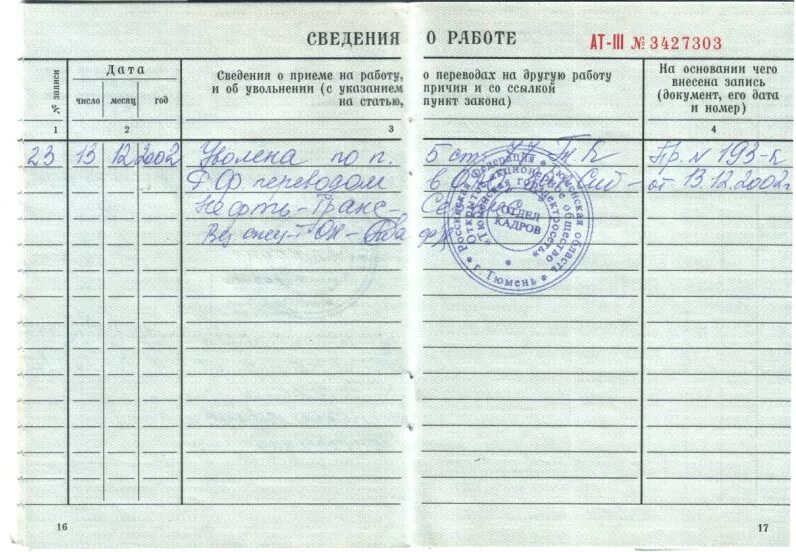 СВЕДЕНИЯ О РАБОТЕ
АТ-III № 3427303
№ записи
Дата
число месяц год
Сведения о приеме на работу, о переводах на другую работу
и об увольнении (с указанием причин и со ссылкой
на статью, пункт закона)
На основании чего
внесена запись
(документ, его дата
и номер)
1 2 3 4
23 13 12 2002 Уволена по п. 5 ст. 77 ТК Пр. № 193-к
РФ переводом в от 13.12.2002г
Нефть-Транс-
Российская Федерация * Тюменская область
* г. Тюмень *
Открытое акционерное общество
"Тюменская горэлектросеть"
ОТДЕЛ
КАДРОВ
16
17